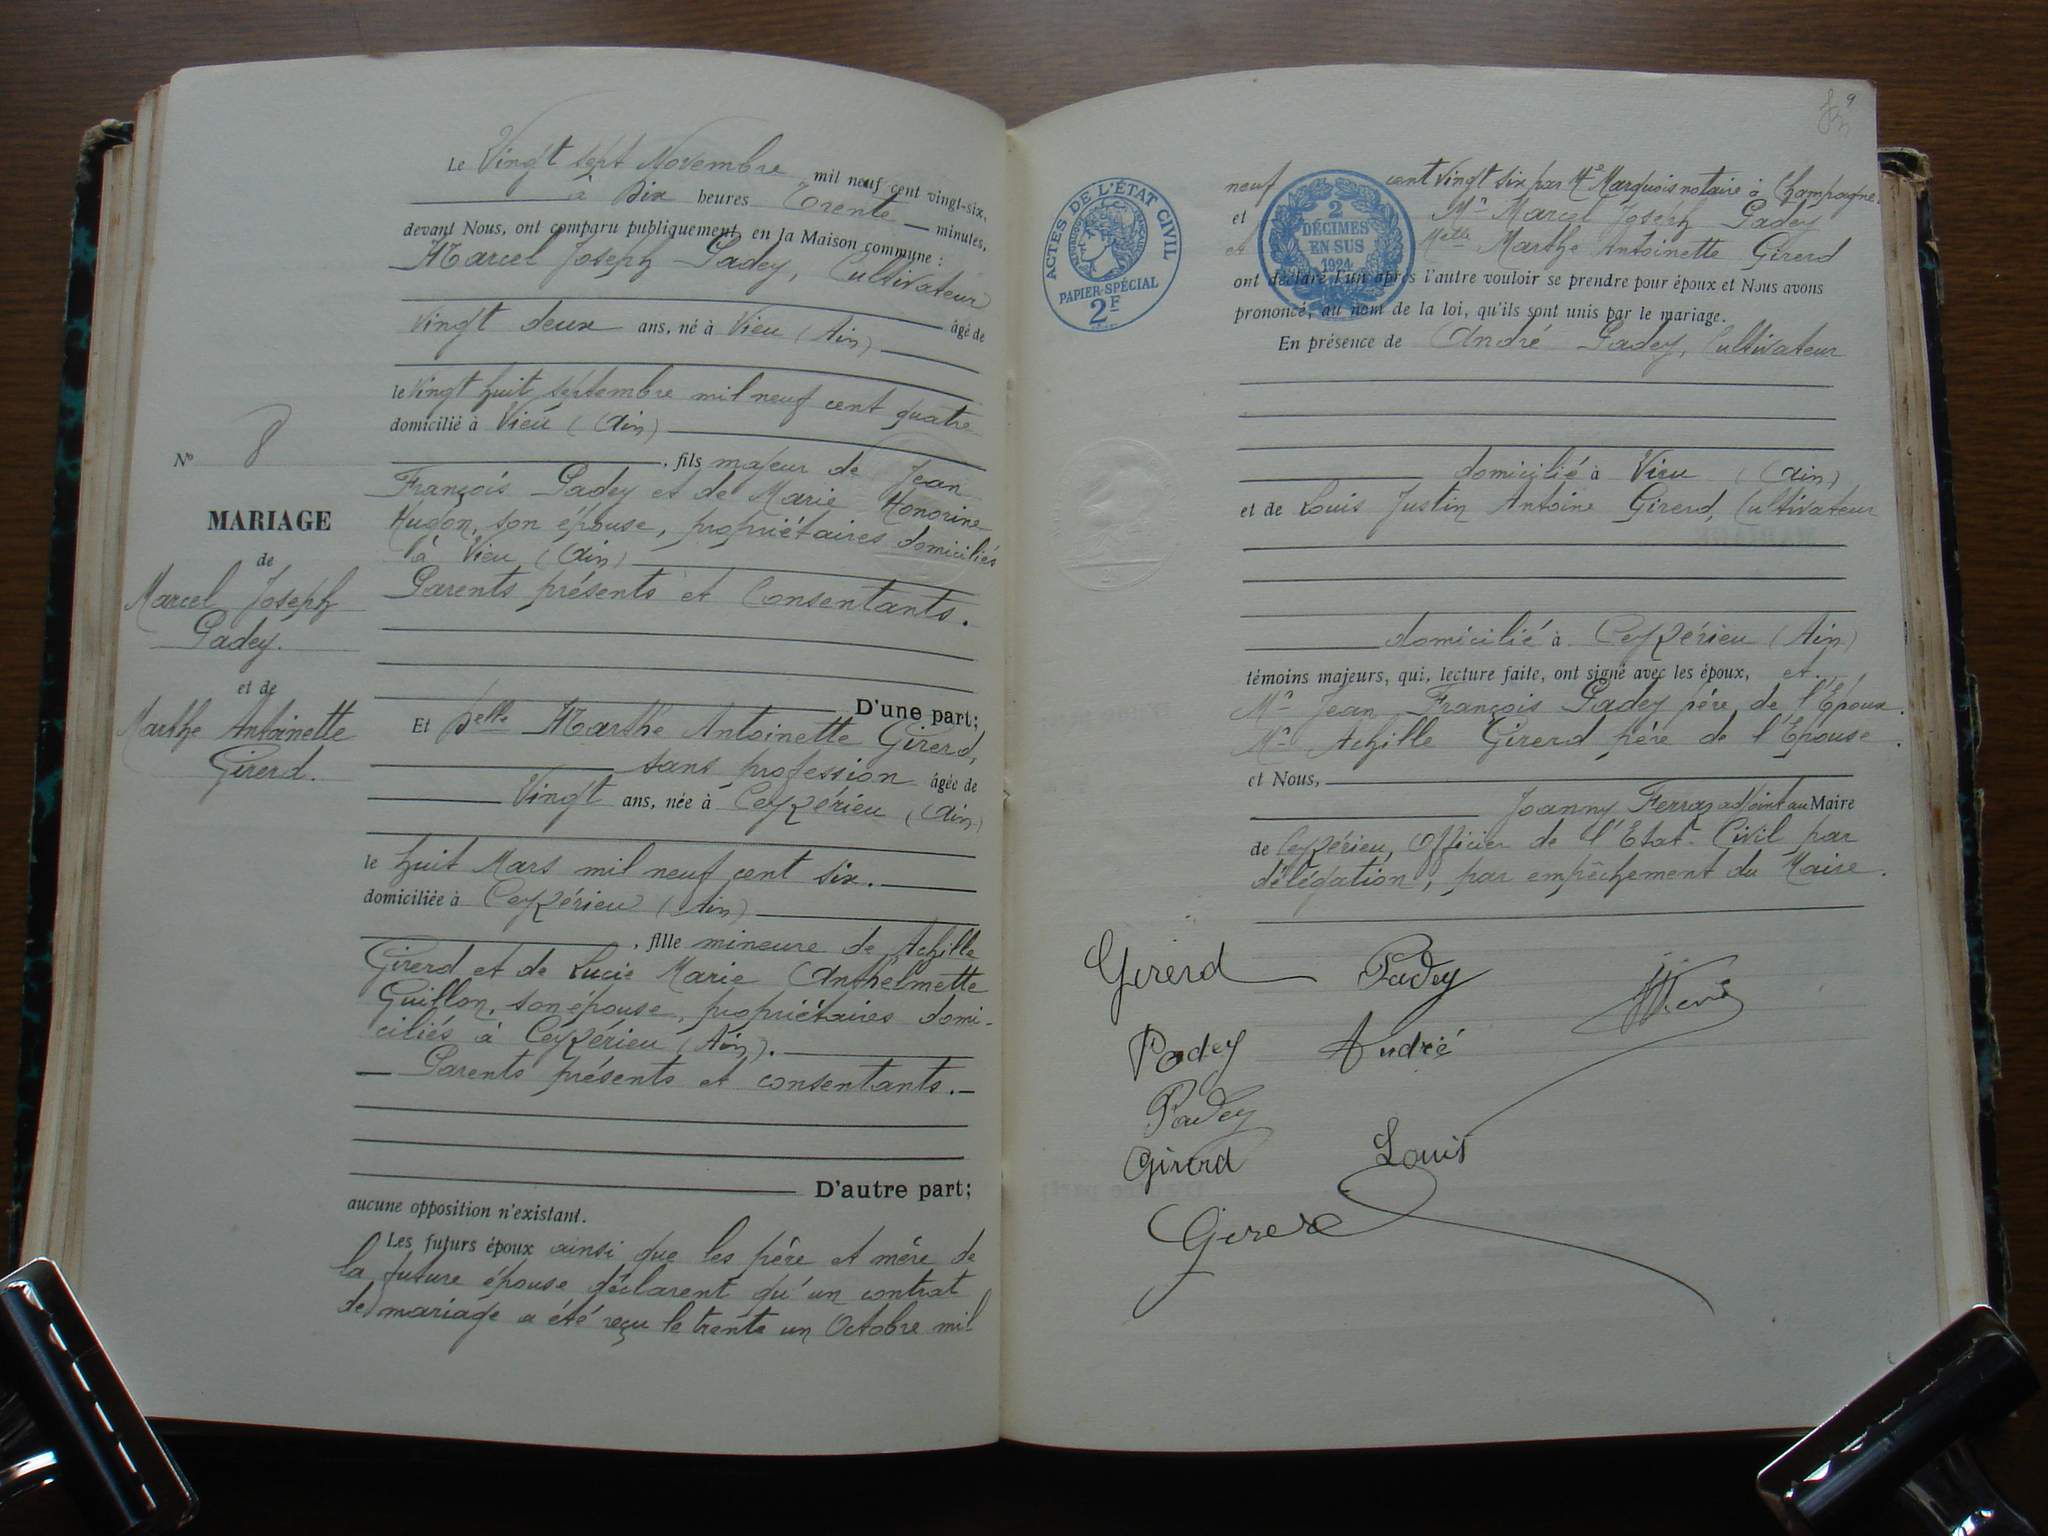 Le Vingt sept Novembre mil neuf cent vingt-six,
à Dix heures Trente minutes,
devant Nous, ont comparu publiquement en la Maison commune :
Marcel Joseph Padey, Cultivateur
âgé de
vingt deux ans, né à Vieu (Ain)
le vingt huit septembre mil neuf cent quatre
domicilié à Vieu (Ain)
, fils majeur de Jean
François Padey et de Marie Honorine
Hugon, son épouse, propriétaires domiciliés
à Vieu (Ain)
Parents présents et Consentants.
D'une part;
Et Delle Marthe Antoinette Girerd,
sans profession âgée de
Vingt ans, née à Ceyzérieu (Ain)
le huit Mars mil neuf cent six.
domiciliée à Ceyzérieu (Ain)
, fille mineure de Achille
Girerd et de Lucie Marie Anthelmette
Guillon, son épouse, propriétaires domi-
ciliés à Ceyzérieu (Ain).
Parents présents et consentants.
D'autre part;
aucune opposition n'existant.
Les futurs époux ainsi que les père et mère de
la future épouse déclarent qu'un contrat
de mariage a été reçu le trente un Octobre mil
No 8
MARIAGE
de
Marcel Joseph
Padey.
et de
Marthe Antoinette
Girerd.
9
neuf cent vingt six par Me Marquois notaire à Champagne.
et Mr Marcel Joseph Padey
et Melle Marthe Antoinette Girerd
ont déclaré l'un après l'autre vouloir se prendre pour époux et Nous avons
prononcé, au nom de la loi, qu'ils sont unis par le mariage.
En présence de André Padey, Cultivateur
domicilié à Vieu (Ain)
et de Louis Justin Antoine Girerd, Cultivateur
domicilié à Ceyzérieu (Ain)
témoins majeurs, qui, lecture faite, ont signé avec les époux, et
Mr Jean François Padey père de l'Epoux.
Mr Achille Girerd père de l'Epouse.
et Nous,
Joanny Ferraz adjoint au Maire
de Ceyzérieu, Officier de l'Etat-Civil par
délégation, par empêchement du Maire.
ACTES DE L'ÉTAT CIVIL
PAPIER SPÉCIAL
2F
2
DÉCIMES
EN SUS
1924
Girerd Padey
Padey André
Padey
Girerd Louis
Girerd